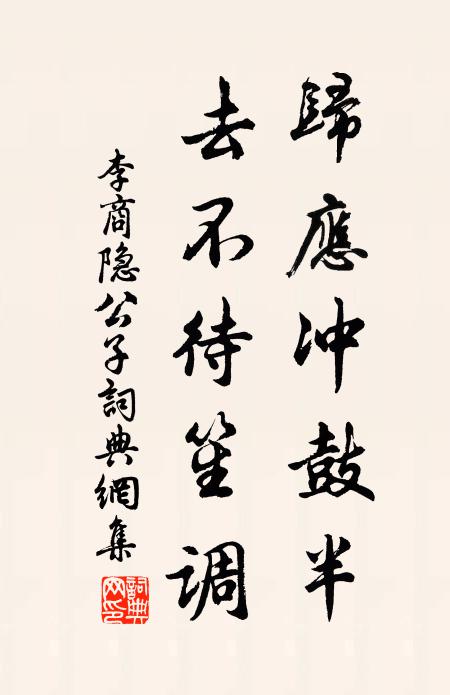 歸應冲鼓半
去不待笙调
李商隐公子詞典網集
詞典网印